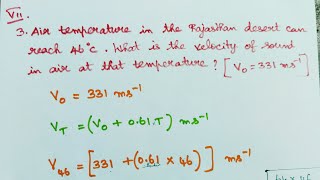 VII
3. Air temperature in the Rajasthan desert can
reach 46°C. What is the velocity of sound
in air at that temperature? [V₀ = 331 ms⁻¹]
V₀ = 331 ms⁻¹
V_T = (V₀ + 0.61.T) ms⁻¹
V₄₆ = [331 + (0.61 × 46)] ms⁻¹